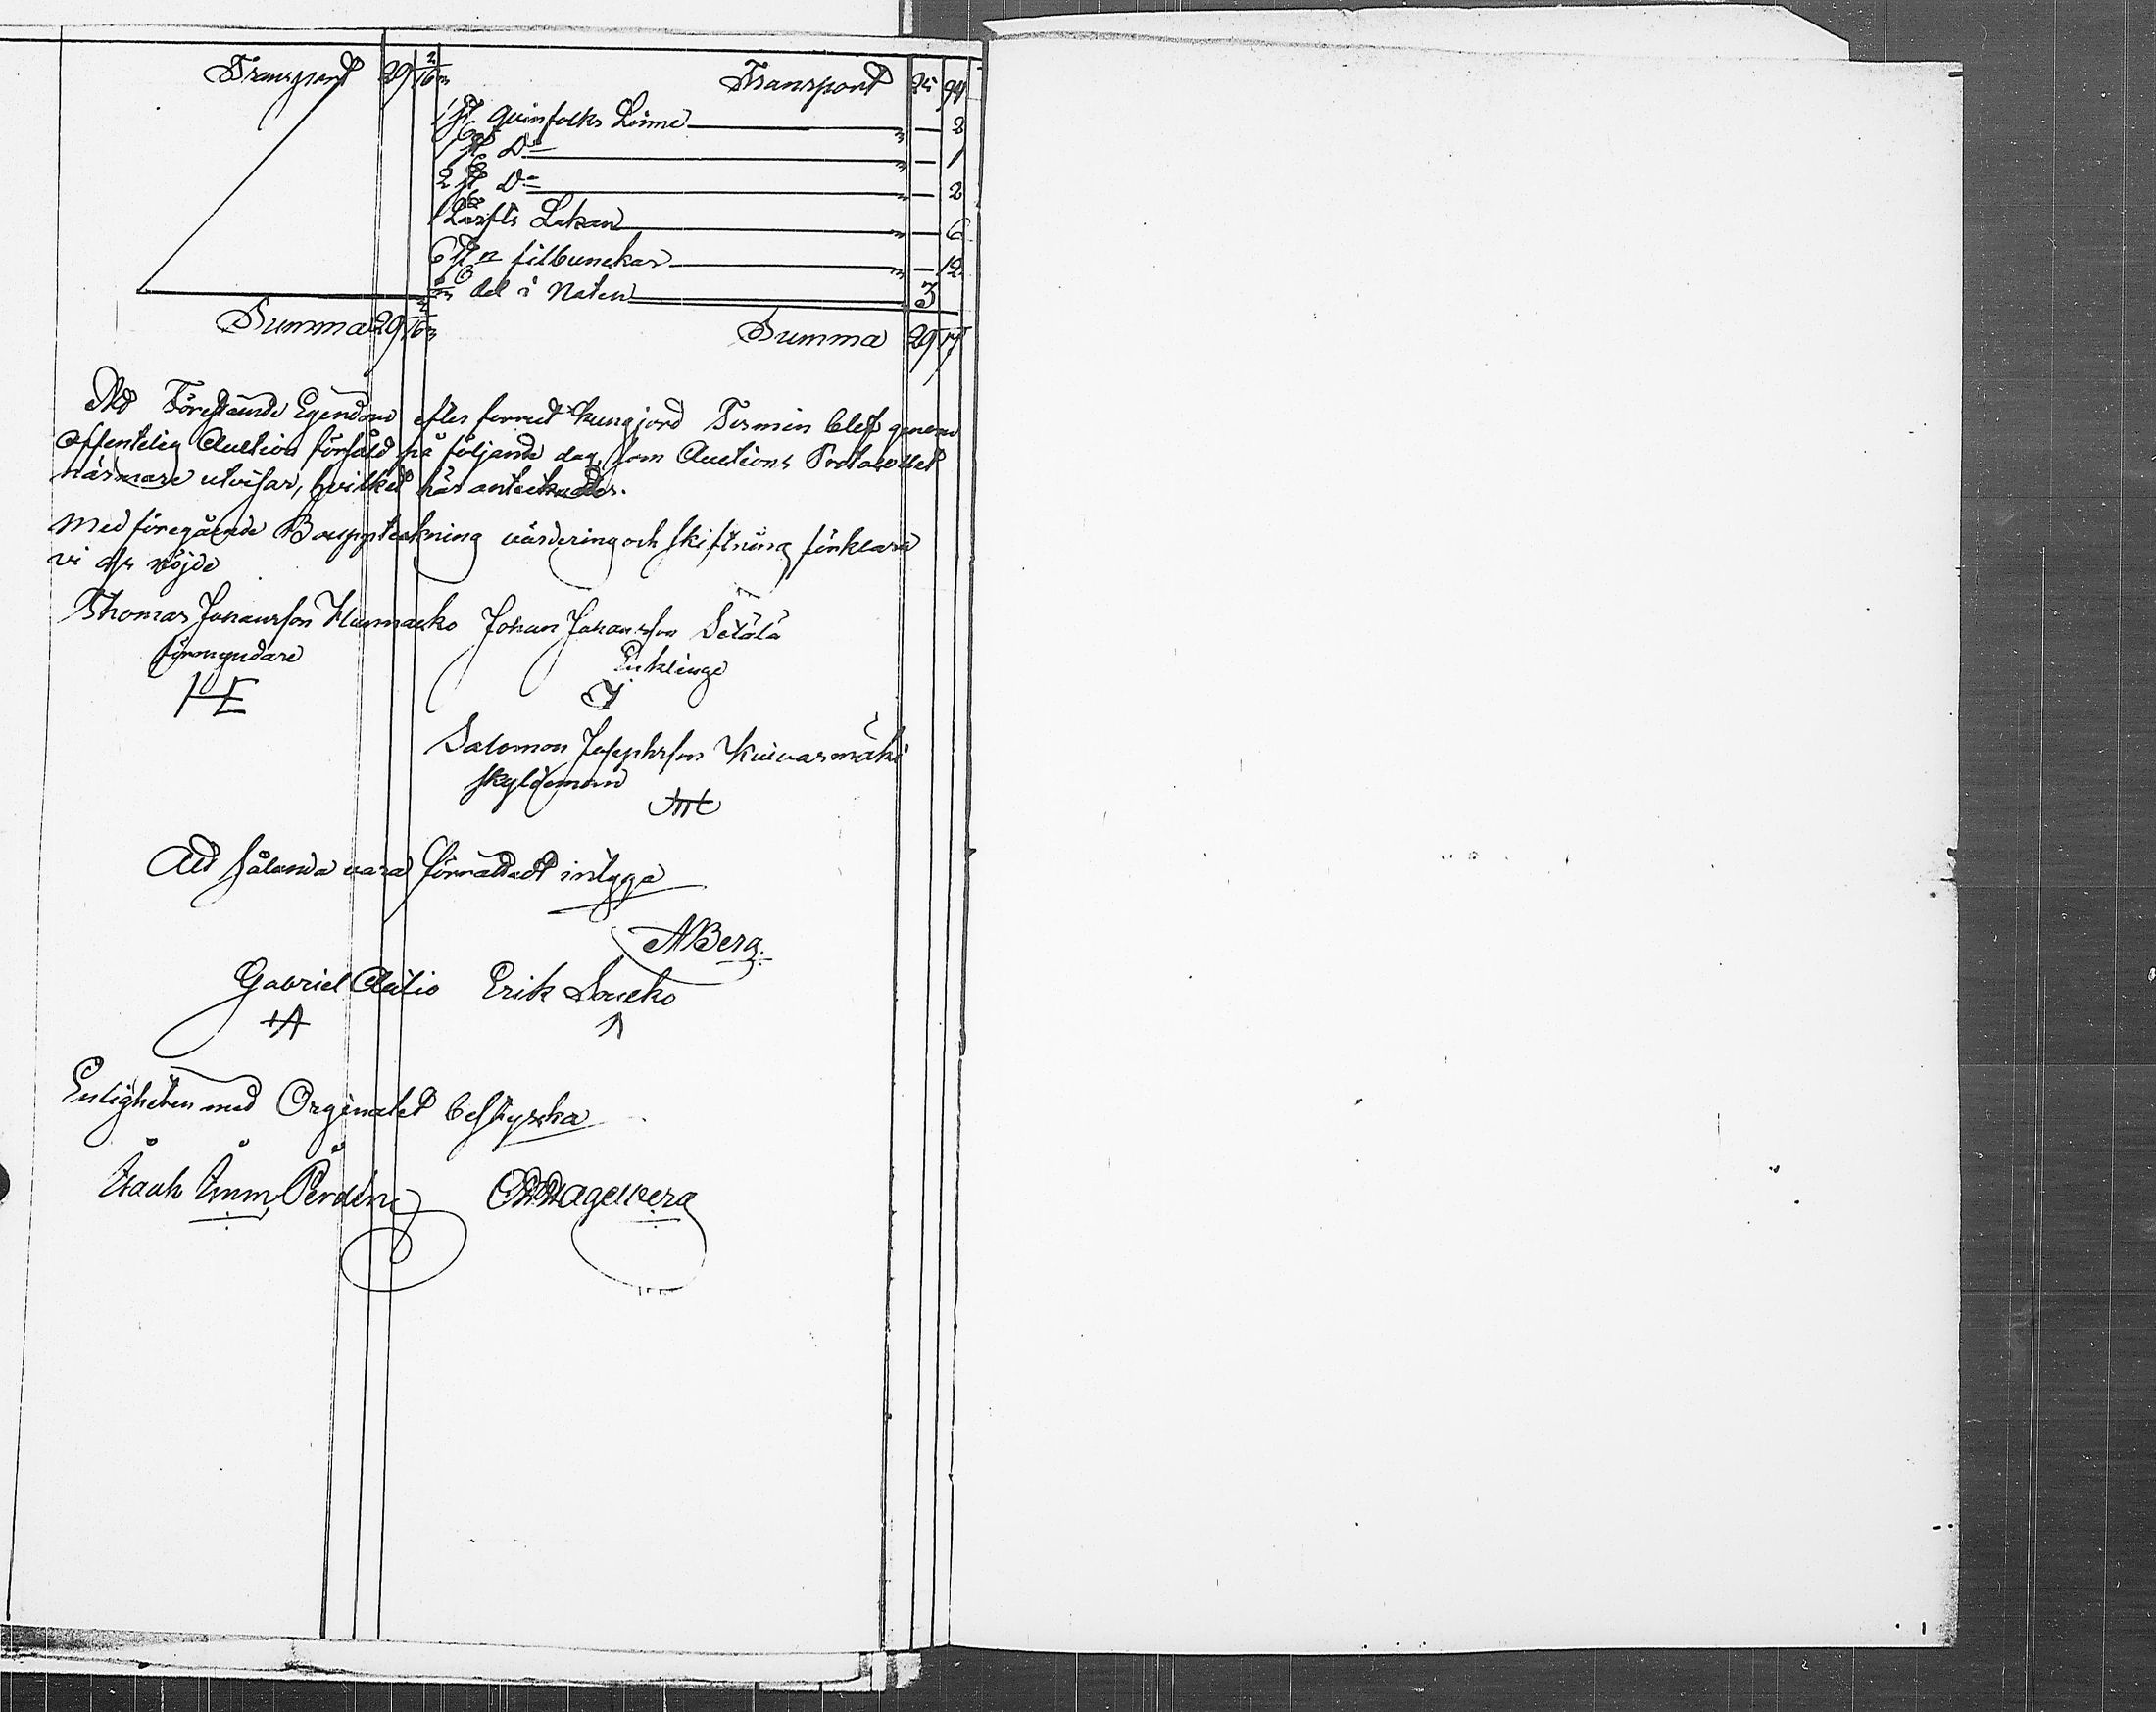 Transport 29 16 2/3 Transport 25 94
1 st Qvinfolks Linne — 2
1 st Do — 1
2 st Do — 2
1 Lärfts Lakan — 6
6 st filbunckar — 12
del i Noten 3
Summa 29 16 2/3 Summa 29 17
Att Förestående Egendom efter förrut kungjord Termin blef genom
offentelig Auction försåld på följande dag, som Auctions Protocollet
närmare utvisar, hvilket här antecknades.
Med föregående Bouppteckning värdering och skiftning förklara
vi oss nöjde
Thomas Johansson Johan Johansson Setälä
förmyndare Enklinge
HE
Salomon Josephsson Kuivasmäki
skyldeman
Att sålunda vara förrättadt intyga
ABerg.
Gabriel Autio Erik Soucko
Enligheten med Orginalet bestyrka
Isaak Imm. Perdén